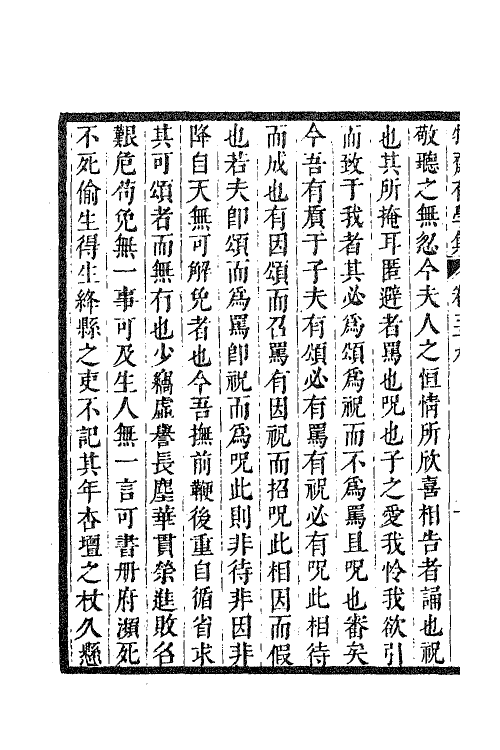 敬聽之無忽今夫人之恒情所欣喜相告者誦也祝
也其所掩耳匿避者罵也呪也子之愛我怜我欲引
而致于我者其必爲頌爲祝而不爲罵且呪也審矣
今吾有質于子夫有頌必有罵有祝必有呪此相待
而成也有因頌而召罵有因祝而招呪此相因而假
也若夫卽頌而爲罵卽祝而爲呪此則非待非因非
降自天無可解免者也今吾撫前鞭後重自循省求
其可頌者而無冇也少竊虛譽長塵華貫榮進敗名
艱危苟免無一事可及生人無一言可書册府瀕死
不死偷生得生絳縣之吏不記其年杏壇之杖久懸